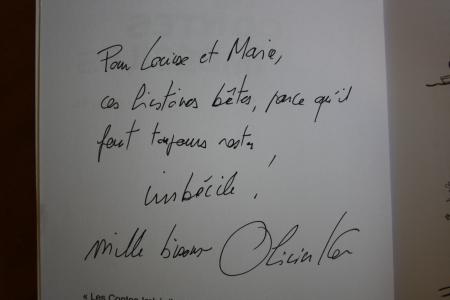 Pour Louise et Marie,
ces histoires bêtes, parce qu'il
faut toujours rester
imbécile !
mille bisous Olivier Ka
« Les Contes